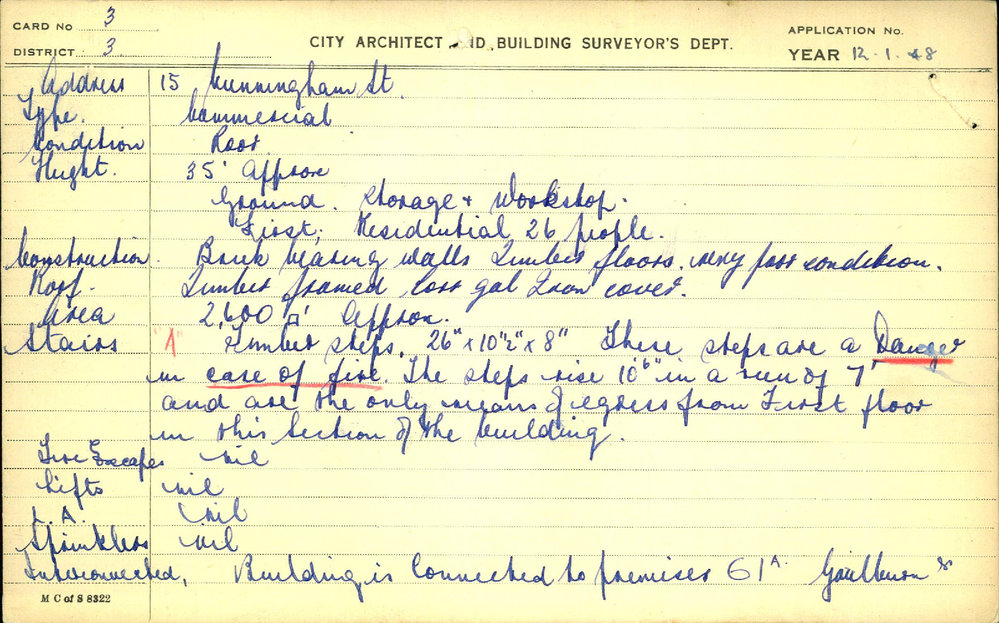 CARD No 3
DISTRICT. 3.
CITY ARCHITECT AND BUILDING SURVEYOR'S DEPT.
APPLICATION No.
YEAR 12.1.48
Address 15 Cunningham St.
Type. Commercial
Condition Poor
Height. 35' Approx
Ground. Storage + Workshop.
First; Residential 26 people.
Construction. Brick bearing walls Timber floors. very poor condition.
Roof. Timber framed corr gal Iron cover.
Area 2,600 □' Approx.
Stairs "A" Timber steps. 26" x 10½" x 8" These steps are a Danger
in case of fire. The steps rise 10'6" in a run of 7'
and are the only means of egress from First floor
in this section of the building.
Fire Escapes nil
Lifts nil
L.A. nil
Sprinklers nil
Interconnected, Building is connected to premises 61A. Goulburn St
M C of S 8322